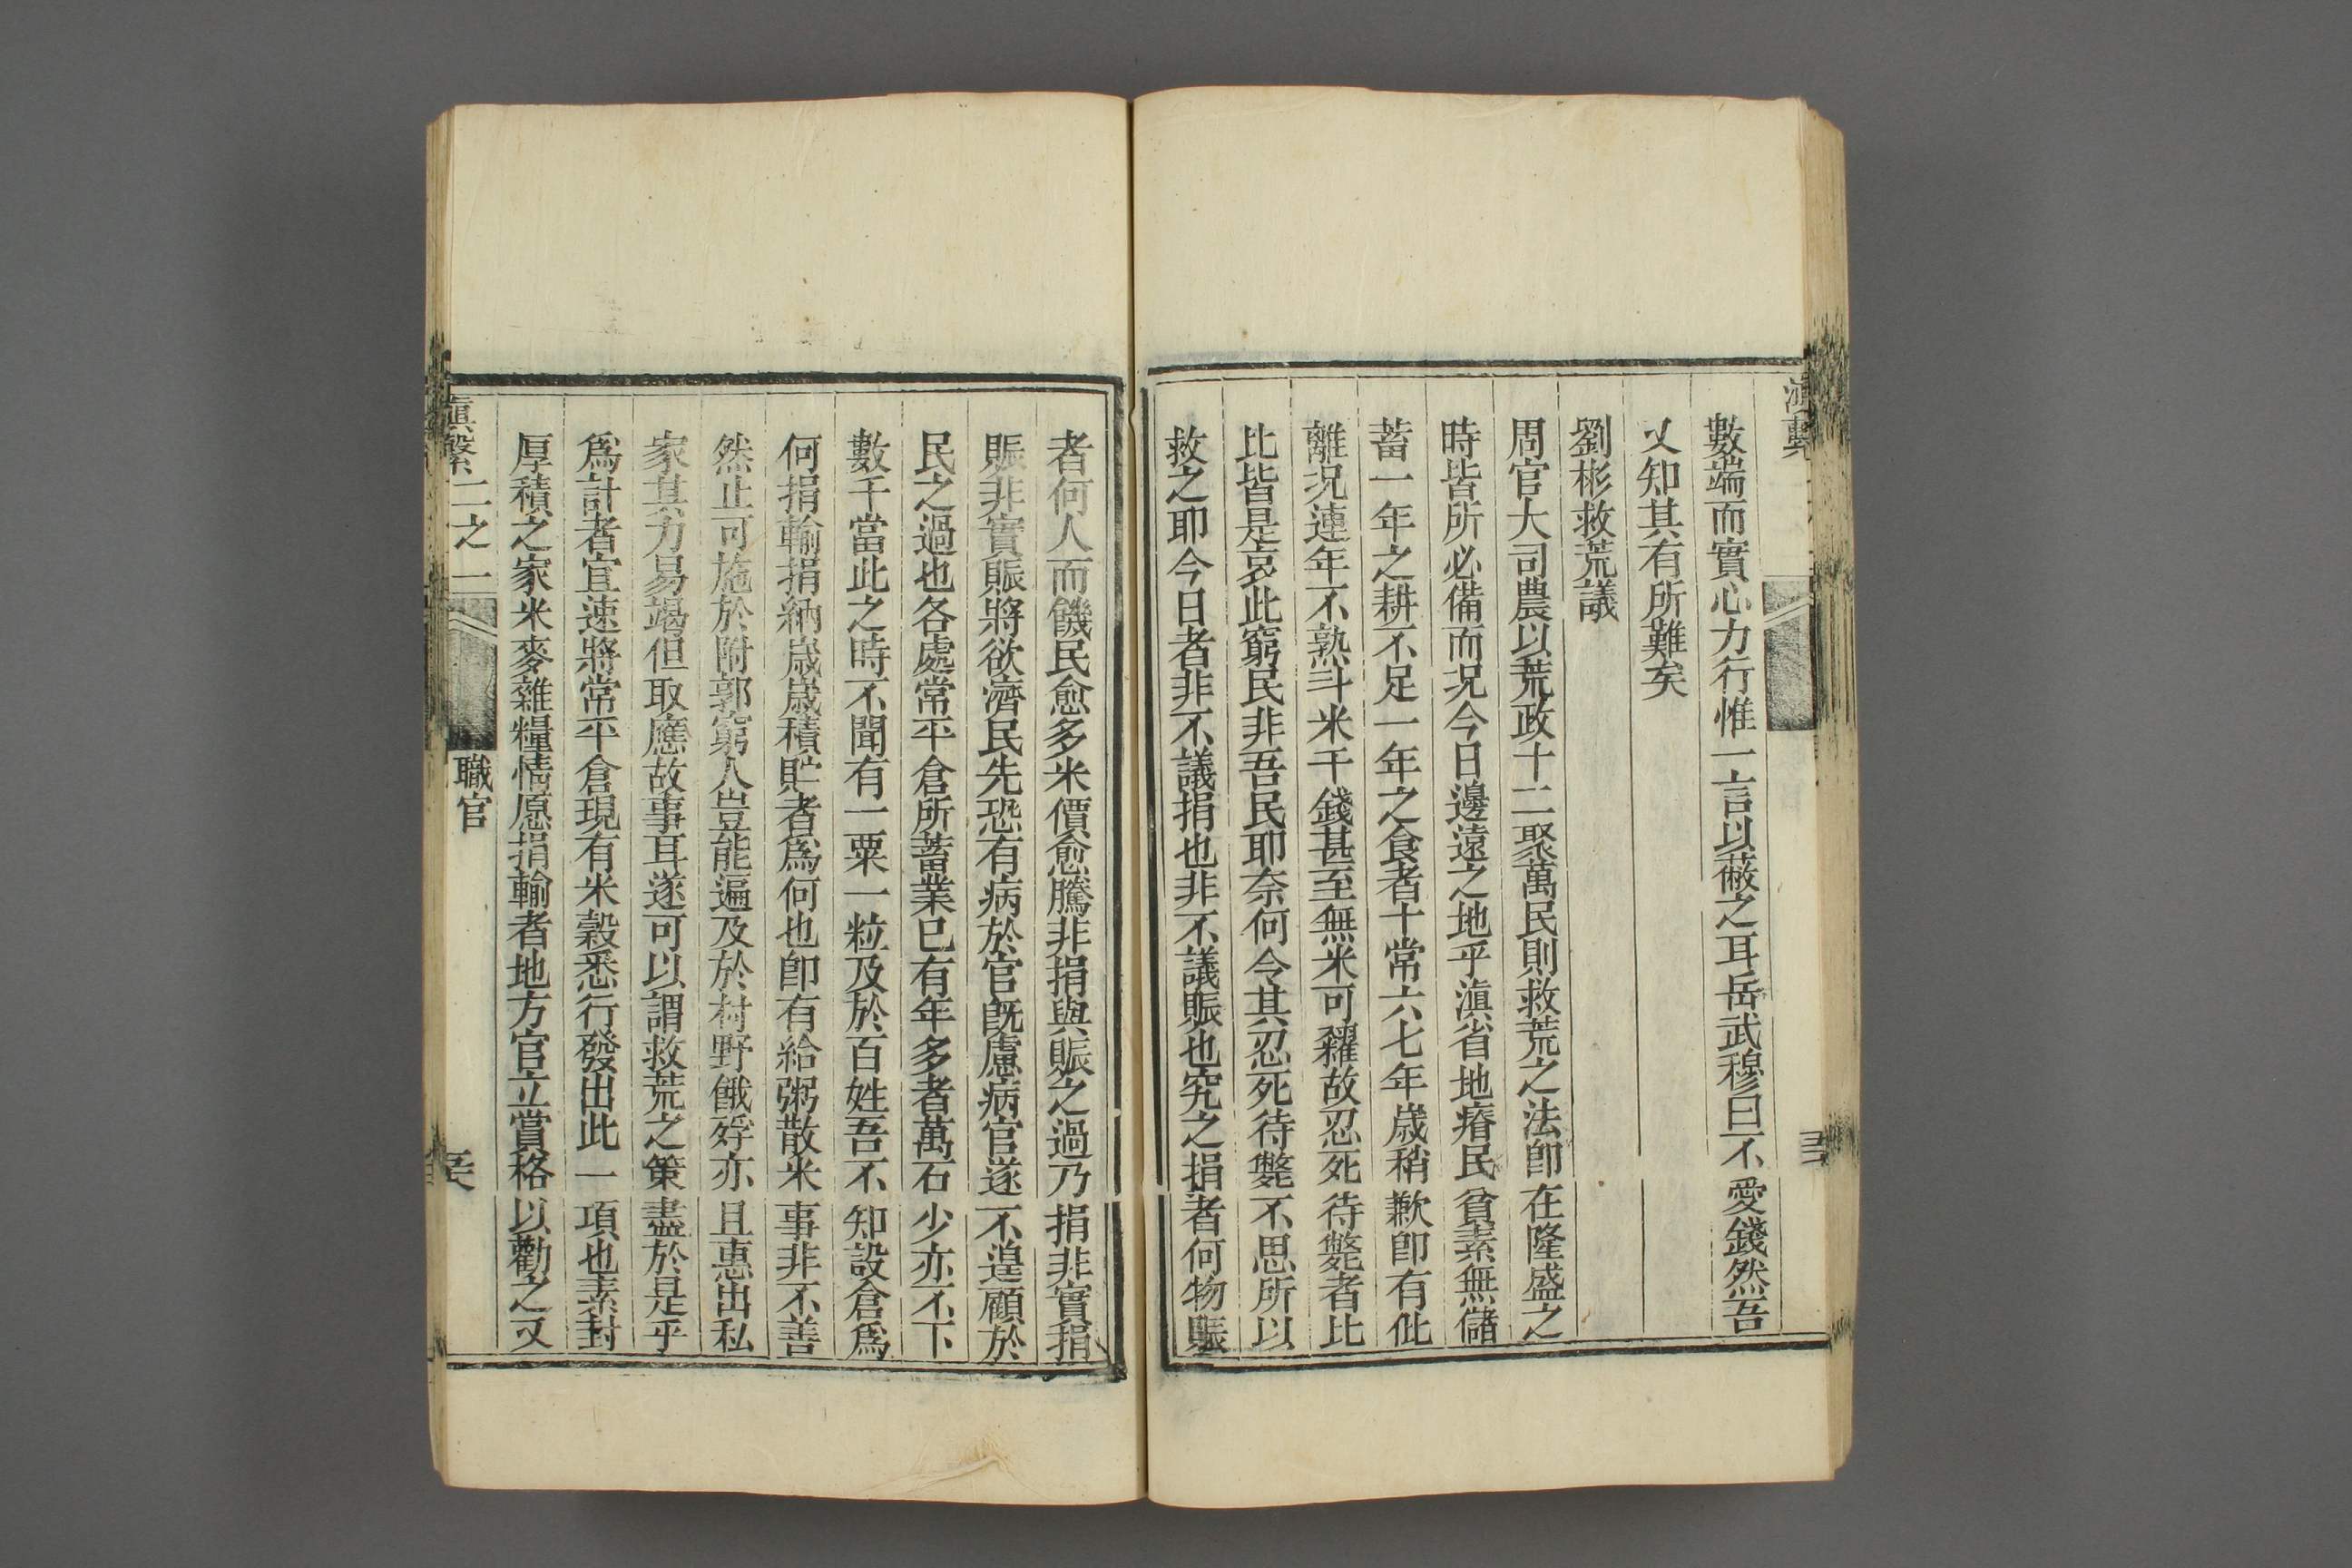 數端而實心力行惟一言以蔽之耳岳武穆曰不愛錢然吾
又知其有所難矣
劉彬救荒議
周官大司農以荒政十二聚萬民則救荒之法卽在隆盛之
時皆所必備而况今日邊遠之地乎滇省地瘠民貧素無儲
蓄一年之耕不足一年之食者十常六七年歲稍歉卽有仳
離况連年不熟斗米千錢甚至無米可糴故忍死待斃者比
比皆是哀此窮民非吾民耶奈何令其忍死待斃不思所以
救之耶今日者非不議捐也非不議賑也究之捐者何物賑
者何人而饑民愈多米價愈騰非捐與賑之過乃捐非實捐
賑非實賑將欲濟民先恐有病於官旣慮病官遂不遑顧於
民之過也各處常平倉所蓄業已有年多者萬石少亦不下
數千當此之時不聞有一粟一粒及於百姓吾不知設倉爲
何捐輸捐納歲歲積貯者爲何也卽有給粥散米事非不善
然止可施於附郭窮人豈能遍及於村野餓殍亦且惠出私
家其力易竭但取應故事耳遂可以謂救荒之策盡於是乎
爲計者宜速將常平倉現有米穀悉行發出此一項也素封
厚積之家米麥雜糧情愿捐輸者地方官立賞格以勸之又
滇繫 二之一 職官